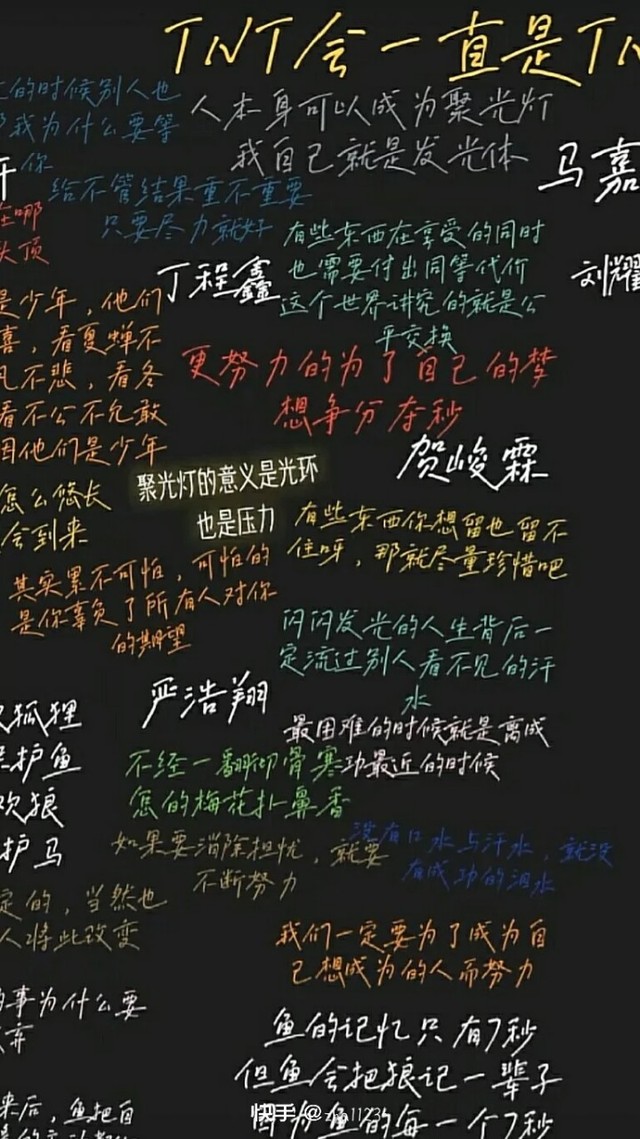 TNT会一直是TN
的时候别人也
我为什么要等
你
人本身可以成为聚光灯
我自己就是发光体
马嘉
给不管结果重不重要
只要尽力就好
在哪
头顶
有些东西在享受的同时
也需要付出同等代价
这个世界讲究的就是公
平交换
丁程鑫
刘耀
是少年，他们
喜，看夏蝉不
不悲，看冬
看不公不允敢
因他们是少年
更努力的为了自己的梦
想争分夺秒
贺峻霖
聚光灯的意义是光环
也是压力
怎么悠长
会到来
有些东西你想留也留不
住呀，那就尽量珍惜吧
其实累不可怕，可怕的
是你辜负了所有人对你
的期望
闪闪发光的人生背后一
定流过别人看不见的汗
水
严浩翔
狐狸
护鱼
欢狼
护马
最困难的时候就是离成
功最近的时候
不经一翻彻骨寒
怎的梅花扑鼻香
如果要消除担忧，就要
不断努力
没有口水与汗水，就没
有成功的泪水
定的，当然也
人将此改变
我们一定要为了成为自
己想成为的人而努力
的事为什么要
弃
鱼的记忆只有7秒
但鱼会把狼记一辈子
因为鱼的每一个7秒
来后，鱼把自
快手